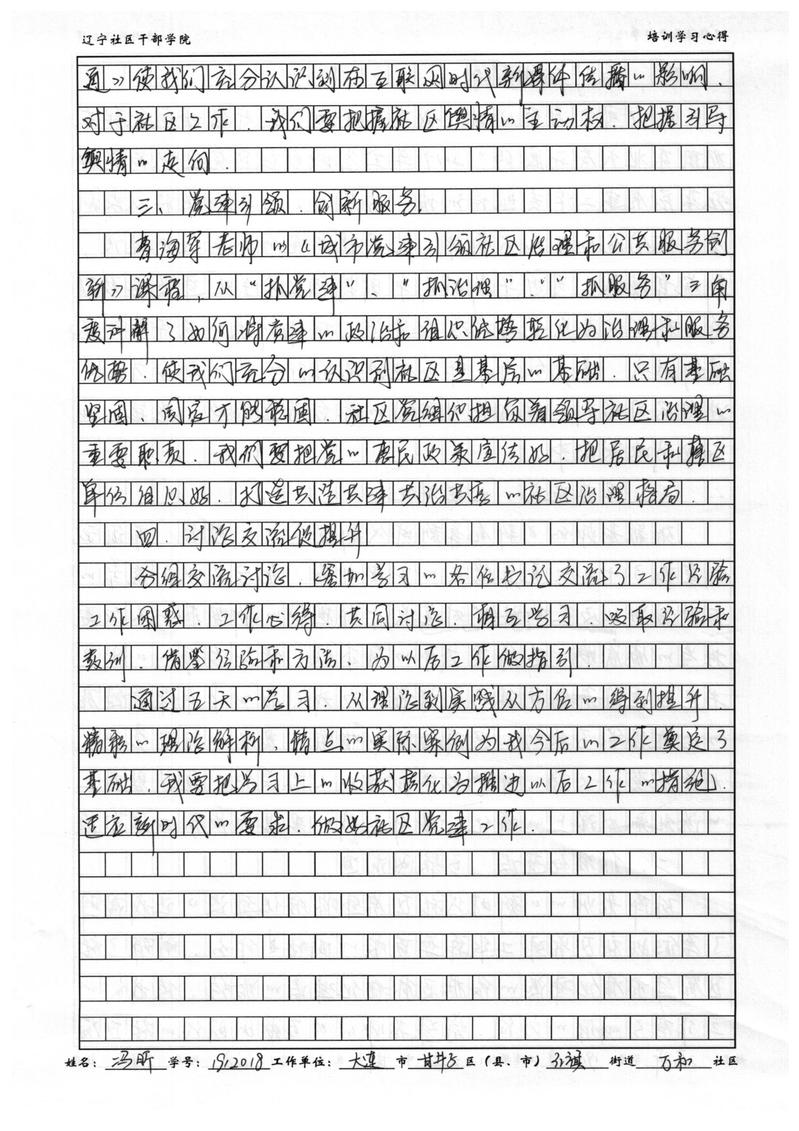 辽宁社区干部学院 培训学习心得
通》使我们充分认识到在互联网时代新媒体传播的影响,
对于社区工作,我们要把握社区舆情的主动权,把握引导
舆情的走向.
三、党建引领,创新服务.
曹海军老师的《城市党建引领社区治理和公共服务创
新》课程,从“抓党建”、“抓治理”、“抓服务”三角
度讲解了如何将党建的政治和组织优势转化为治理和服务
优势.使我们充分的认识到社区是基层的基础.只有基础
坚固,国家才能稳固.社区党组织担负着领导社区治理的
重要职责.我们要把党的惠民政策宣传好,把居民和辖区
单位组织好,打造共建共治共享的社区治理格局.
四.讨论交流促提升
分组交流讨论,参加学习的各位书记交流了工作经验
工作困惑、工作心得,共同讨论,相互学习,吸取经验和
教训,借鉴经验和方法,为以后工作做指引.
通过五天的学习,从理论到实践全方位的得到提升
精彩的理论解析,精点的实际案例为我今后的工作奠定了
基础.我要把学习上的收获转化为推进以后工作的措施.
适应新时代的要求,做好社区党建工作.
姓名:冯昕 学号:1912018 工作单位:大连 市 甘井子 区(县、市) 红旗 街道 万和 社区